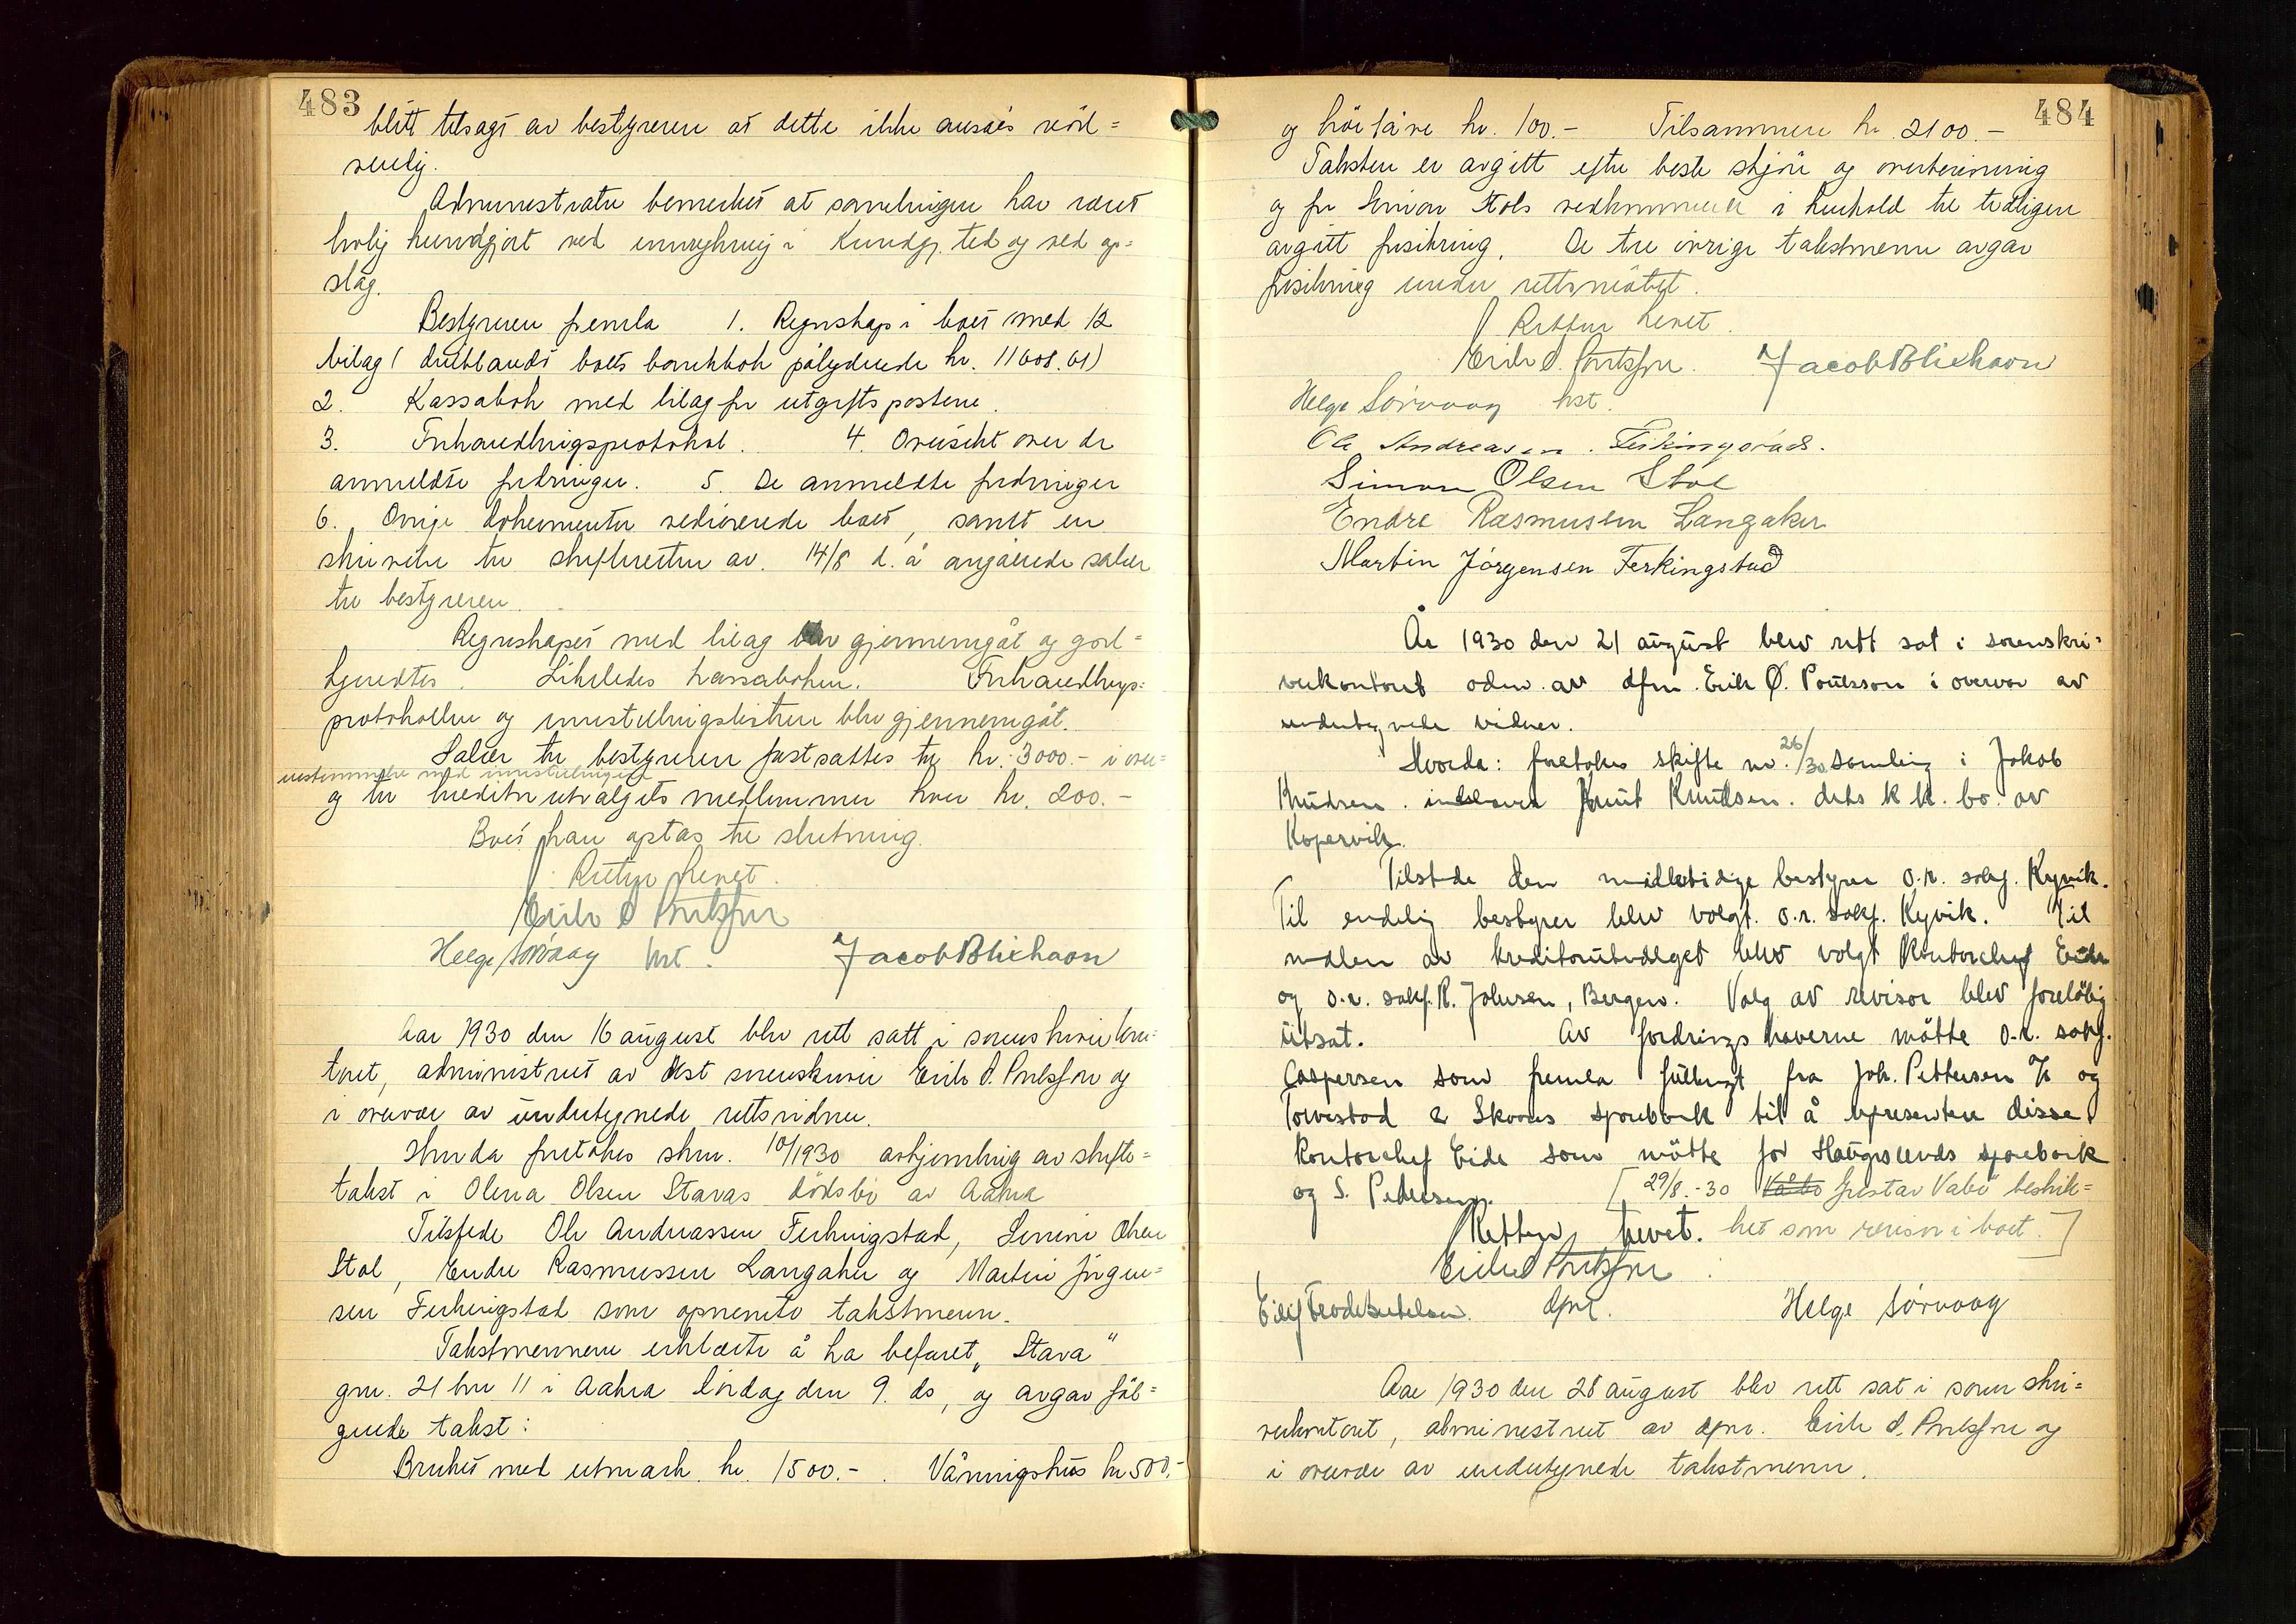 483
blitt tilsagt av bestyreren at dette ikke ansaes nöd=
vendig.
Administrator bemerket at samlingen har været
lovlig kundgjort ved innrykning i Kundgj. tid og ved op=
slag.
Bestyreren fremla 1. Regnskap i boet med 12
bilag (deriblandt boets bankbok pålydende kr. 11608.01)
2. Kassabok med bilag for utgiftspostene.
3. Forhandlingsprotokol. 4. Oversikt over de
anmeldte fordringer. 5. De anmeldte fordringer
6. Övrige dokumenter vedrörende boet, samt en
skrivelse til skifteretten av 14/8 d. å angående salær
til bestyreren.
Regnskapet med bilag blev gjennemgåt og god=
kjendtes. Likeledes kassaboken. Forhandlings=
protokollen og innstillingslisten blev gjennemgåt.
Salær til bestyreren fastsattes til kr. 3000.- i over=
ensstemmelse med innstillingen
og til kreditorutvalgets medlemmer hver kr. 200.-
Boet kan optas til slutning.
Retten hevet.
Erik Ø. Poulsson
Helge Sörvaag hst. Jacob Blikhavn
Aar 1930 den 16 august blev rett satt i sorenskriverkon=
toret, administrert av kst sorenskriver Erik Ø. Poulsson og
i overvær av undertegnede rettsvidner.
Hvorda foretokes skm. 10/1930 avhjemling av skifte=
takst i Olena Olsen Stavas dödsbo av Aakra
Tilstede Ole Andreassen Ferkingstad, Simon Olsen
Stol, Endre Rasmussen Langaker og Martin Jörgen=
sen Ferkingstad som opnevnte takstmenn.
Takstmennene erklærte å ha befaret "Stava"
gnr. 21 bnr 11 i Aakra lördag den 9. ds, og avgav föl=
gende takst:
Bruket med utmark kr. 1500.-. Våningshus kr 500.-
484
og höiløe kr. 100.- Tilsammen kr. 2100.-
Taksten er avgitt efter beste skjön og overbevisning
og for Simon Stols vedkommende i henhold til tidligere
avgitt forsikring. De tre övrige takstmenn avgav
forsikring under rettsmötet.
Retten hevet.
Erik Ø. Poulsson. Jacob Blikhavn
Helge Sörvaag hst.
Ole Andreasen. Ferkingstad.
Simon Olsen Stol
Endre Rasmussen Langaker
Martin Jörgensen Ferkingstad
År 1930 den 21 august blev rett sat i sorenskri=
verkontoret adm. av dfm. Erik Ø. Poulsson i overvær av
undertegnede vidner.
Hvorda: foretokes skifte nr. 26/30 samling i Jakob
Knudsen. Knut Knudsen. dets k k. bo av
Kopervik.
Tilstede den midlertidige bestyrer o.r. sakf. Kyvik.
Til endelig bestyrer blev valgt o.r. sakf. Kyvik. Til
medlem av kreditorutvalget blev valgt Kontorchef Eide
og o.r. sakf. R. Johnsen, Bergen. Valg av revisor blev foreløbig
utsat. Av fordringshaverne mötte o.r. sakf.
Caspersen som fremla fullmagt fra Joh. Pettersen og
Torvestad & Skaares sparebank til å representere disse.
Kontorchef Eide som mötte for Haugesunds sparebank
og S. Pedersen. [29/8.-30 Vabö Gustav Vabö beskik=
Retten hevet. ket som revisor i boet.]
Erik Ø Poulsson
dfm. Helge Sörvaag
Aar 1930 den 28 august blev rett sat i sorenskri=
verkontoret, administrert av dfm. Erik Ø. Poulsson og
i overvær av undertegnede takstmenn.